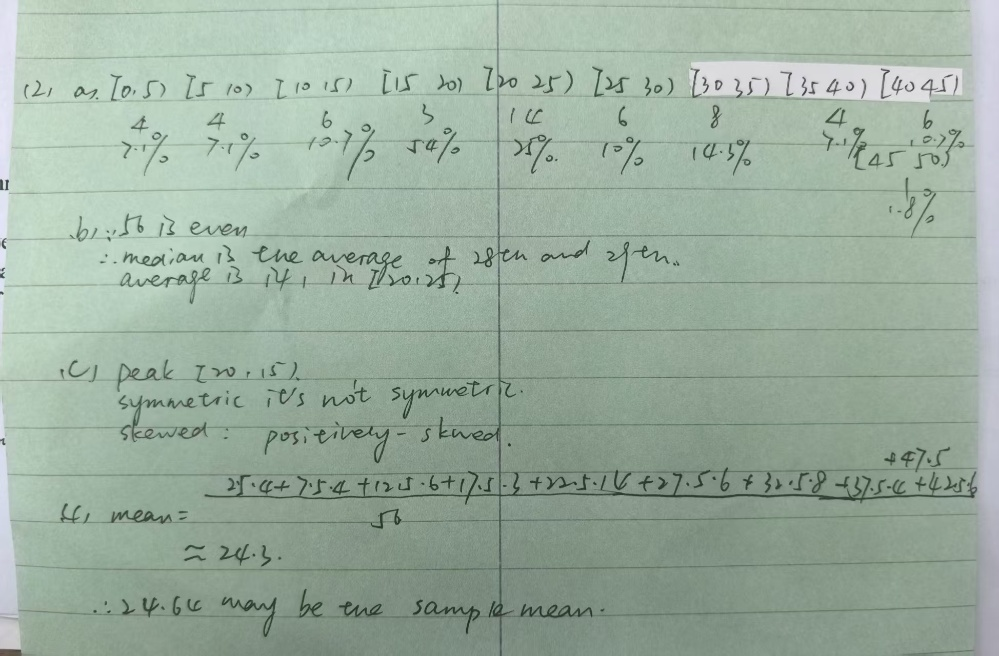 (2) a. [0,5) [5 10) [10 15) [15 20) [20 25) [25 30) [30 35) [35 40) [40 45)
4 4 6 3 14 6 8 4 6
7.1% 7.1% 10.7% 5.4% 25%. 10% 14.3% 7.1% 10.7%
[45 50)
1
1.8%
b) ∵ 56 is even
∴ median is the average of 28th and 29th.
average is 14, in [20,25)
(c) peak [20,15).
symmetric it's not symmetric.
skewed: positively-skwed.
+47.5
25·4+7.5·4+12.5·6+17.5·3+22.5·14+27.5·6+32.5·8+37.5·4+42.5·6
4, mean=
56
≈ 24.3.
∴ 24.64 may be the sample mean.